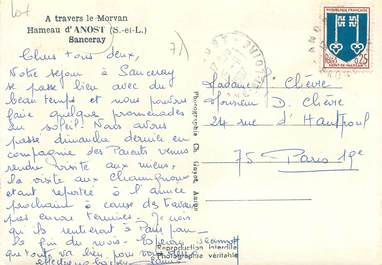 A travers le Morvan
Hameau d'ANOST (S.-et-L.)
Sanceray
Chers tous deux,
Notre séjour à Sanceray
se passe bien avec du
beau temps et nous pouvons
faire quelque promenades
au soleil! Nous avons
passé dimanche dernier en
compagnie des Parents venus
rendre visite aux mieux.
la visite aux Champignons
étant reportée à l'année
prochaine à cause des travaux
pas encore terminés. Je crois
qu'ils rentreront à Paris pour
la fin du mois.
que tout va bien pour vous
Madame Chèvre
Monsieur D. Chèvre
24 rue d'Hautpoul
75 Paris 19e
Photographie Ch. Guyot, Autun
Reproduction interdite
Photographie véritable
REPUBLIQUE FRANÇAISE
0,25
MONT-DE-MARSAN